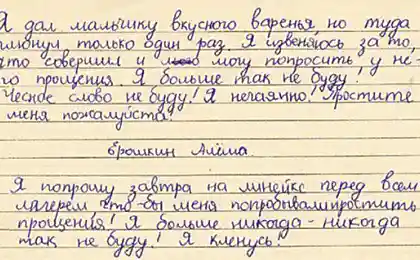 Я дал мальчику вкусного варенья но туда
плюнул, только один раз. Я извеняюсь за то,
что совершил и могу попросить у не-
го прощения. Я больше так не буду!
Чесное слово не буду! Я нечаянно! Простите
меня пожалуйста!
Ерошкин Алёша
Я попрошу завтра на линейке перед всем
лагерем что-бы меня попробывали простить
прощения! Я больше никогда-никогда
так не буду! Я кленусь!